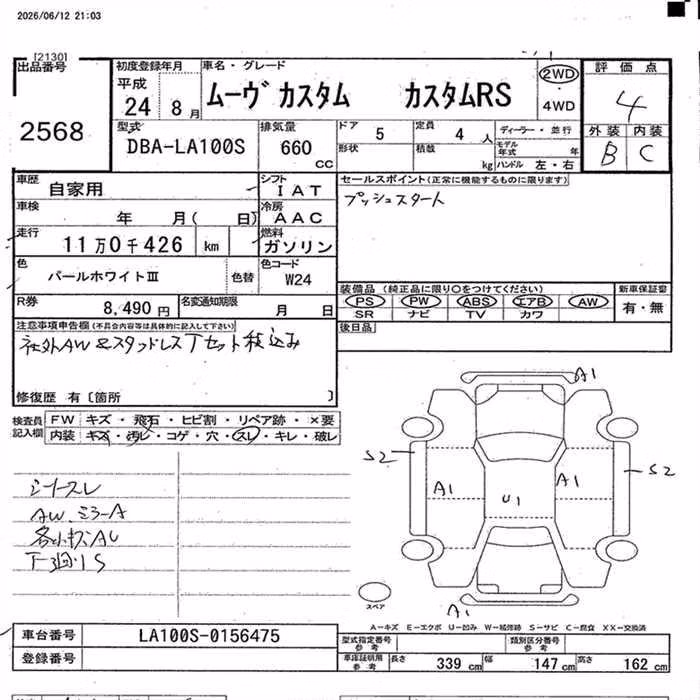 2026/06/12 21:03
[2130]
出品番号
2568
初度登録年月
平成
24 8月
車名・グレード
ムーヴ カスタム カスタムRS
2WD
4WD
評価点
4
外装 内装
B C
型式
DBA-LA100S
排気量
660
CC
ドア 5
形状
定員 4 人
積載 kg
ディーラー・並行
モデル年式 年
ハンドル 左・右
車歴
自家用
シフト
IAT
車検
年 月( 日)
冷房
AAC
走行
11万0千426 km
燃料
ガソリン
色
パールホワイトⅢ
色替
色コード
W24
R券
8,490 円
名変通知期限
月 日
セールスポイント(正常に機能するものに限ります)
プッシュスタート
装備品 (純正品に限り〇をつけてください)
PS PW ABS エアB AW
SR ナビ TV カワ
新車保証書
有・無
後日品
注意事項申告欄(不具合内容等は具体的に記入して下さい)
社外AW &スタッドレスTセット積込み
修復歴 有〔箇所 〕
検査員
記入欄
FW キズ・飛石・ヒビ割・リペア跡・×要
内装 キズ・汚レ・コゲ・穴・スレ・キレ・破レ
シートスレ
AW、ミラーA
各小キズAU
下廻りS
A1
S2
S2
A1
A1
U1
A1
スペア
A-キズ E-エクボ U-凹み W-補修跡 S-サビ C-腐食 XX-交換済
車台番号
LA100S-0156475
登録番号
型式指定番号
参考
類別区分番号
参考
車庫証明用
参考
長さ 339 cm 幅 147 cm 高さ 162 cm